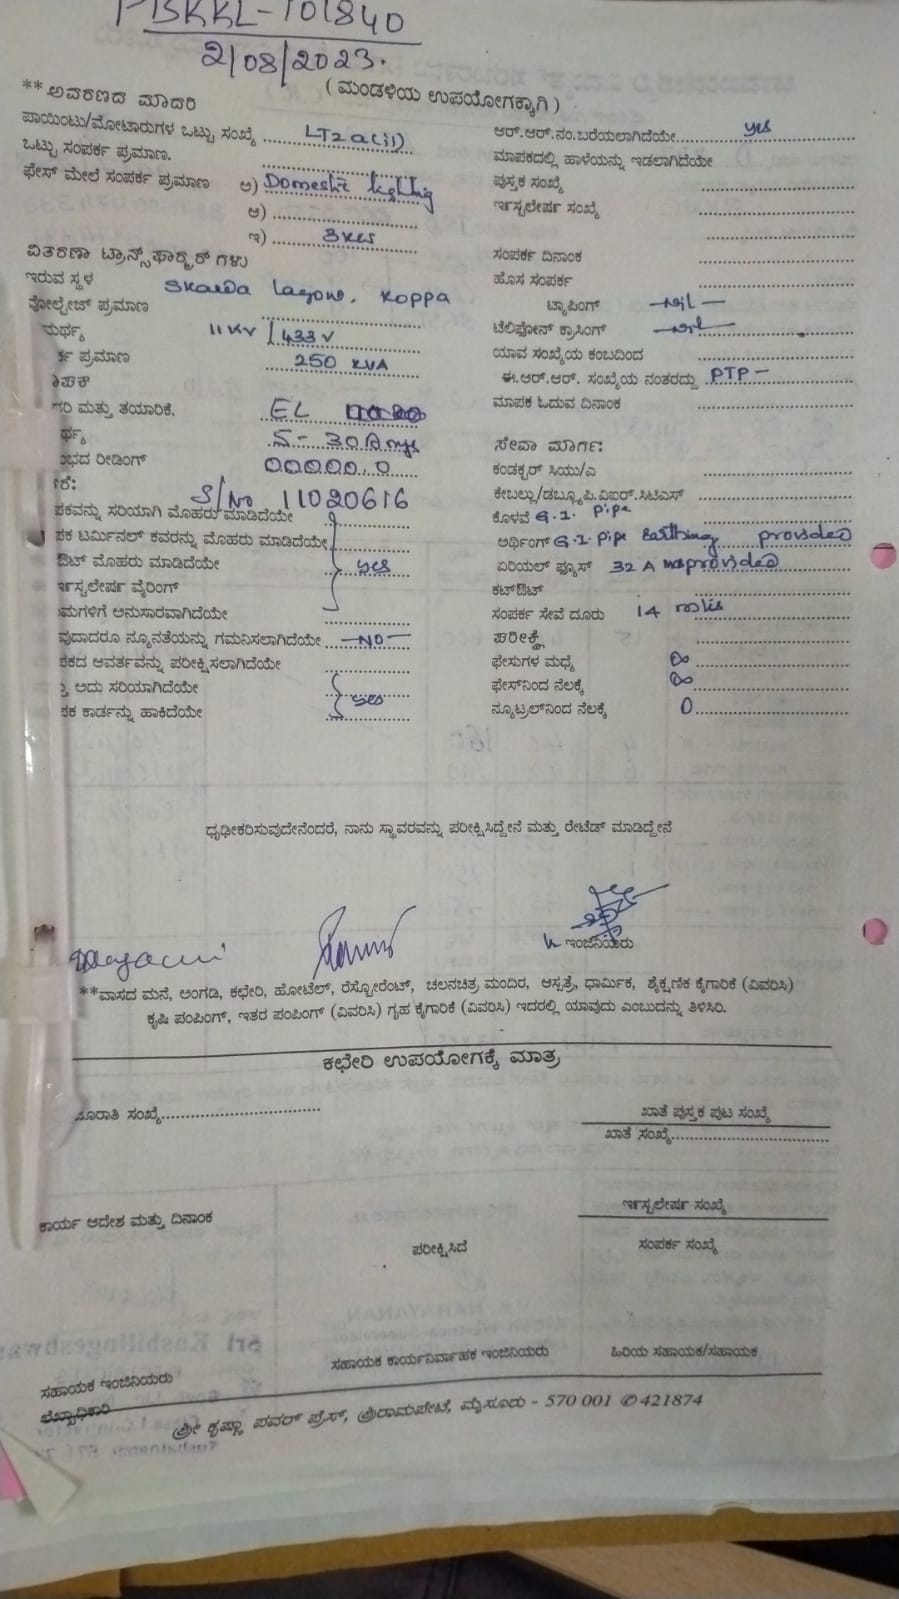 PBKKL-101840
2/08/2023.
(ಮಂಡಳಿಯ ಉಪಯೋಗಕ್ಕಾಗಿ)
**ಅವರಣದ ಮಾದರಿ
ಪಾಯಿಂಟು/ಮೋಟಾರುಗಳ ಒಟ್ಟು ಸಂಖ್ಯೆ LT2a(ii)
ಒಟ್ಟು ಸಂಪರ್ಕ ಪ್ರಮಾಣ.
ಫೇಸ್ ಮೇಲೆ ಸಂಪರ್ಕ ಪ್ರಮಾಣ ಅ) Domestic lighting
ಆ)
ಇ) 3
ವಿತರಣಾ ಟ್ರಾನ್ಸ್‌ಫಾರ್ಮರ್ ಗಳು
ಇರುವ ಸ್ಥಳ Skanda Lagone, Koppa
ವೋಲ್ಟೇಜ್ ಪ್ರಮಾಣ
ಮರ್ಥ್ಯ 11KV/433V
ಪ್ರಮಾಣ 250 KVA
ರಿ ಮತ್ತು ತಯಾರಿಕೆ. EL
ರ್ಥ್ಯ 5-30Amps
ಭದ ರೀಡಿಂಗ್ 00000.0
S/No 11020616
ಪಕವನ್ನು ಸರಿಯಾಗಿ ಮೊಹರು ಮಾಡಿದೆಯೇ
ಪಕ ಟರ್ಮಿನಲ್ ಕವರನ್ನು ಮೊಹರು ಮಾಡಿದೆಯೇ
ಔಟ್ ಮೊಹರು ಮಾಡಿದೆಯೇ yes
ರ್ಇನ್ಸ್ಟಲೇಷನ ವೈರಿಂಗ್
ಮಗಳಿಗೆ ಅನುಸಾರವಾಗಿದೆಯೇ
ವುದಾದರೂ ನ್ಯೂನತೆಯನ್ನು ಗಮನಿಸಲಾಗಿದೆಯೇ -NO-
ಕದ ಆವರ್ತವನ್ನು ಪರೀಕ್ಷಿಸಲಾಗಿದೆಯೇ
ಅದು ಸರಿಯಾಗಿದೆಯೇ yes
ಪಕ ಕಾರ್ಡನ್ನು ಹಾಕಿದೆಯೇ
ಆರ್.ಆರ್.ನಂ.ಬರೆಯಲಾಗಿದೆಯೇ yes
ಮಾಪಕದಲ್ಲಿ ಹಾಳೆಯನ್ನು ಇಡಲಾಗಿದೆಯೇ
ಪುಸ್ತಕ ಸಂಖ್ಯೆ
ಸಂಖ್ಯೆ
ಸಂಪರ್ಕ ದಿನಾಂಕ
ಹೊಸ ಸಂಪರ್ಕ
ಟ್ಯಾಪಿಂಗ್ -Nil-
ಟೆಲಿಫೋನ್ ಕ್ರಾಸಿಂಗ್ -Nil-
ಯಾವ ಸಂಖ್ಯೆಯ ಕಂಬದಿಂದ
ಈ.ಆರ್.ಆರ್. ಸಂಖ್ಯೆಯ ನಂತರದ್ದು PTP-
ಮಾಪಕ ಓದುವ ದಿನಾಂಕ
ಸೇವಾ ಮಾರ್ಗ:
ಕಂಡಕ್ಟರ್ ಸಿಯು/ಎ
ಕೇಬಲ್ಲು/ಡಬ್ಲ್ಯೂ.ಪಿ.ವಿಐಆರ್.ಸಿಟಿಎಸ್
ಕೊಳವೆ G.I. pipe
ಅರ್ಥಿಂಗ್ G.I pipe Earthing provided
ಏರಿಯಲ್ ಫ್ಯೂಸ್ 32 A provided
ಕಟ್‌ಔಟ್
ಸಂಪರ್ಕ ಸೇವೆ ದೂರು 14
ಪರೀಕ್ಷೆ
ಫೇಸುಗಳ ಮಧ್ಯೆ ∞
ಫೇಸ್‌ನಿಂದ ನೆಲಕ್ಕೆ ∞
ನ್ಯೂಟ್ರಲ್‌ನಿಂದ ನೆಲಕ್ಕೆ 0
ಧೃಢೀಕರಿಸುವುದೇನೆಂದರೆ, ನಾನು ಸ್ಥಾವರವನ್ನು ಪರೀಕ್ಷಿಸಿದ್ದೇನೆ ಮತ್ತು ರೇಟೆಡ್ ಮಾಡಿದ್ದೇನೆ
ಇಂಜಿನಿಯರು
**ವಾಸದ ಮನೆ, ಅಂಗಡಿ, ಕಛೇರಿ, ಹೋಟೆಲ್, ರೆಸ್ಟೋರೆಂಟ್, ಚಲನಚಿತ್ರ ಮಂದಿರ, ಆಸ್ಪತ್ರೆ, ಧಾರ್ಮಿಕ, ಶೈಕ್ಷಣಿಕ ಕೈಗಾರಿಕೆ (ವಿವರಿಸಿ)
ಕೃಷಿ ಪಂಪಿಂಗ್, ಇತರ ಪಂಪಿಂಗ್ (ವಿವರಿಸಿ) ಗೃಹ ಕೈಗಾರಿಕೆ (ವಿವರಿಸಿ) ಇದರಲ್ಲಿ ಯಾವುದು ಎಂಬುದನ್ನು ತಿಳಿಸಿರಿ.
ಕಛೇರಿ ಉಪಯೋಗಕ್ಕೆ ಮಾತ್ರ
ಸಂಖ್ಯೆ
ಖಾತೆ ಪುಸ್ತಕ ಪುಟ ಸಂಖ್ಯೆ
ಖಾತೆ ಸಂಖ್ಯೆ
ಸಂಖ್ಯೆ
ಕಾರ್ಯ ಆದೇಶ ಮತ್ತು ದಿನಾಂಕ
ಪರೀಕ್ಷಿಸಿದೆ
ಸಂಪರ್ಕ ಸಂಖ್ಯೆ
ಸಹಾಯಕ ಇಂಜಿನಿಯರು
ಸಹಾಯಕ ಕಾರ್ಯನಿರ್ವಾಹಕ ಇಂಜಿನಿಯರು
ಹಿರಿಯ ಸಹಾಯಕ/ಸಹಾಯಕ
ಲೆಖ್ಖಾಧಿಕಾರಿ
ಶ್ರೀ ಕೃಷ್ಣಾ ಪವರ್ ಪ್ರೆಸ್, ಶ್ರೀರಾಮಪೇಟೆ, ಮೈಸೂರು - 570 001 ✆ 421874